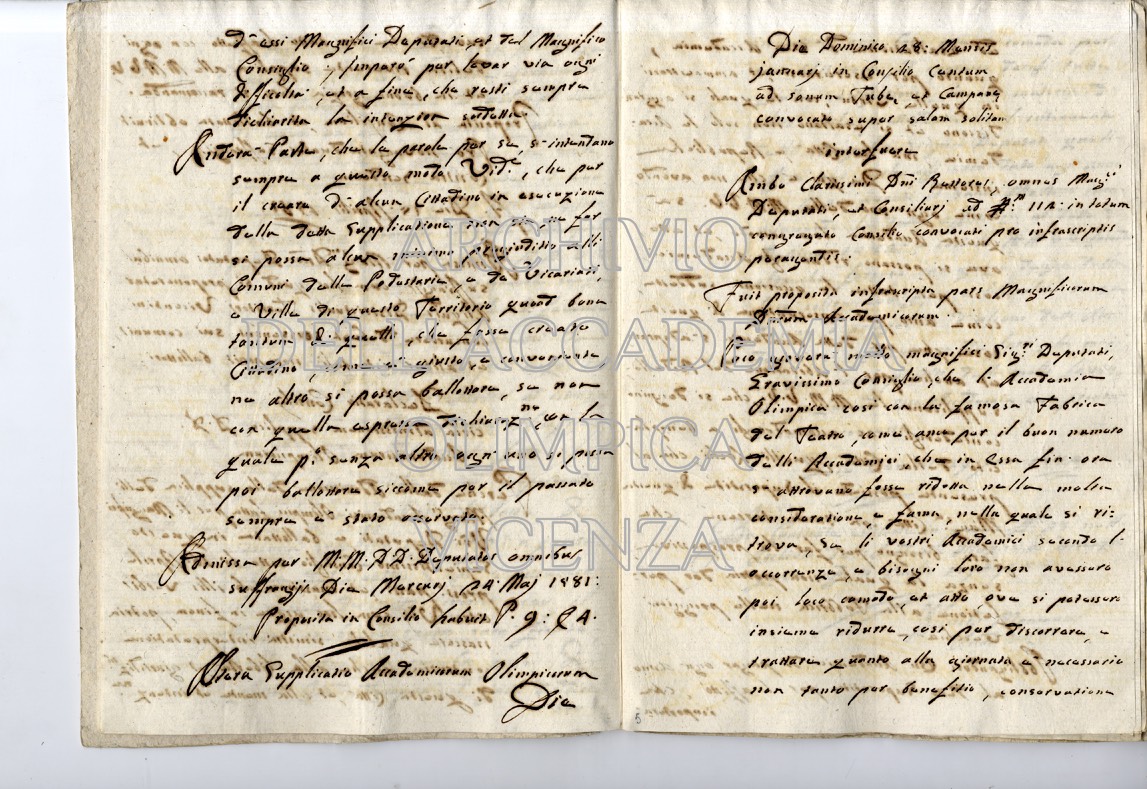 d'essi Magnifici Deputati, et del Magnifico
Consiglio
difficoltà, et a fine, che resti sempre
dichiarita la intenzion sudetta.
Anderà Parte, che la parola per se, s'intendano
sempre a questo modo Vid.t, che per
il creare d'alcun Cittadino in esecuzione
della detta Supplicatione non
si possa alcun minimo pregiuditio alli
Comuni della Podestaria, e de Vicariati,
e Ville di questo Territorio quoad bona
tantum di quelli, che fosse creato
Cittadino, come è giusto, e conveniente
ne altro si possa ballottare, se non
con quella espressa dichiaraz.ne, con la
quale p.ò senza altro ogn'uno si possa
poi ballottare siccome per il passato
sempre è stato osservato.
Admissa per M.M. D.D. Deputatos omnibus
suffragijs Die Mercurj 24 Maj 1581:
Proposita in Consilio habuit P. 9: C 4.
Altera Supplicatio Academicorum Olimpicorum
Die
Die Dominico 28: Mensis
januarj in Consilio Centum
ad sonum Tubæ, et Campanæ
convocato super salam solitam
interfuere
Ambo Clarissimi Dni Rectores, omnes Mag.ci
Deputati, et Consiliarj ad 112: in totum
congregato Consilio convocati pro infrascriptis
peragendis.
Fuit proposita infrascripta pars Magnificorum
Dnrum Academicorum.
Poco goderà molto magnifici Sig.ri Deputati,
Gravissimo Consiglio, che l'Accademia
Olimpica così con la famosa Fabrica
del Teatro, come anco per il buon numero
delli Accademici, che in essa fin' ora
s'attrovano fosse ridotta nella molta
consideratione, e fama, nella quale si ri-
trova, se li vostri Accademici secondo l'
occorrenze, e bisogni loro non avessero
poi loco comodo, et atto, ove si potessero
insieme ridurre, così per discorrere, e
trattare quanto alla giornata è necessario
non tanto per benefitio, conservatione
5
ARCHIVIO
DELL'ACCADEMIA
OLIMPICA
VICENZA